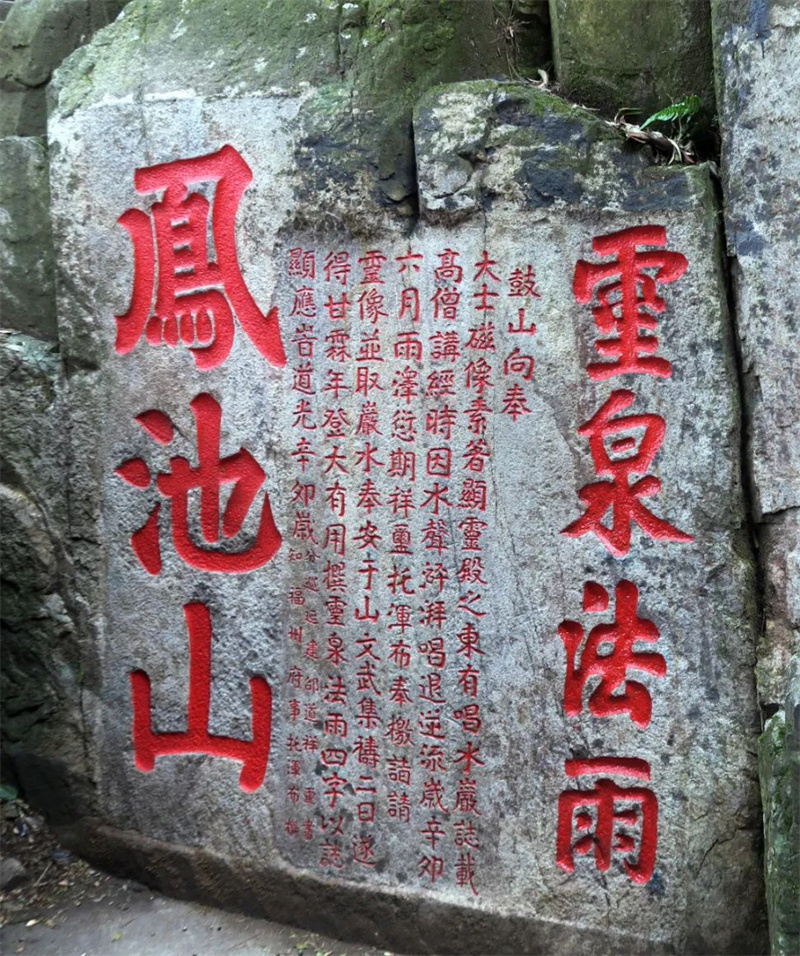 霊泉法雨
鼓山向奉
大士磁像素著顯靈殿之東有喝水巖誌載
高僧講經時因水聲湃喝退逆流歲辛卯
六月雨澤愆期祥璽托渾布奉檄詣請
霊像並取巖水奉安于山文武集禱二日遂
得甘霖年登大有用撰霊泉法雨四字以誌
顯應旹道光辛卯歲
分巡延建邵道祥璽書
知福州府事托渾布撰
鳳池山